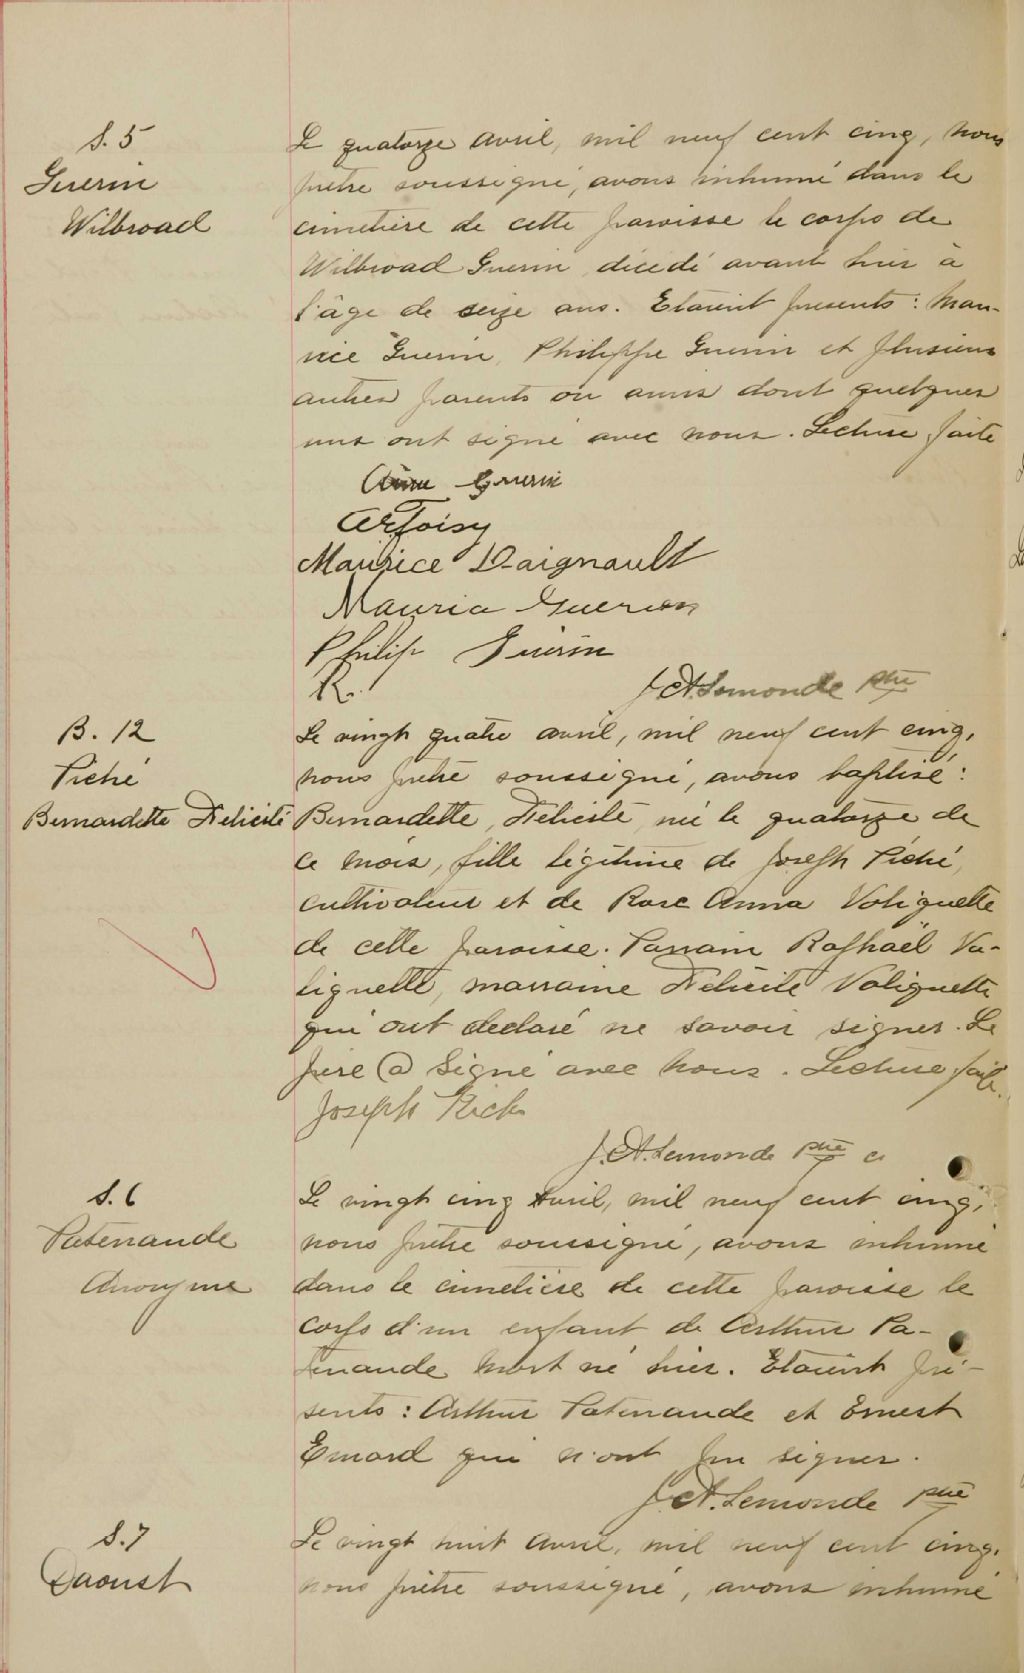 S. 5
Guerin
Wilbroad
Le quatorze avril, mil neuf cent cinq, nous
prêtre soussigné, avons inhumé dans le
cimetière de cette paroisse le corps de
Wilbroad Guerin, décédé avant hier à
l'âge de seize ans. Etaient présents : Mau-
rice Guerin, Philippe Guerin et plusieurs
autres parents ou amis dont quelques
uns ont signé avec nous. Lecture faite
Guerin
Maurice Daignault
Mauria Guerin
Philip Guirin
R.
J. A. Lemonde ptre
B. 12
Piché
Bernardette Félicité
Le vingt quatre avril, mil neuf cent cinq,
nous prêtre soussigné, avons baptisé :
Bernardette, Félicité, née le quatorze de
ce mois, fille légitime de Joseph Piché,
cultivateur et de Rose Anna Valiquette
de cette paroisse. Parrain Raphaël Va-
liquette, marraine Félicité Valiquette
qui ont declaré ne savoir signer. Le
père a signé avec nous. Lecture faite.
Joseph Piche
J. A. Lemonde ptre
S. 6
Patenaude
Anonyme
Le vingt cinq Avril, mil neuf cent cinq,
nous prêtre soussigné, avons inhumé
dans le cimetière de cette paroisse le
corps d'un enfant de Arthur Pa-
tenaude mort né hier. Etaient pré-
sents : Arthur Patenaude et Ernest
Emard qui n'ont pu signer.
J. A. Lemonde ptre
S. 7
Daoust
Le vingt huit avril, mil neuf cent cinq,
nous prêtre soussigné, avons inhumé